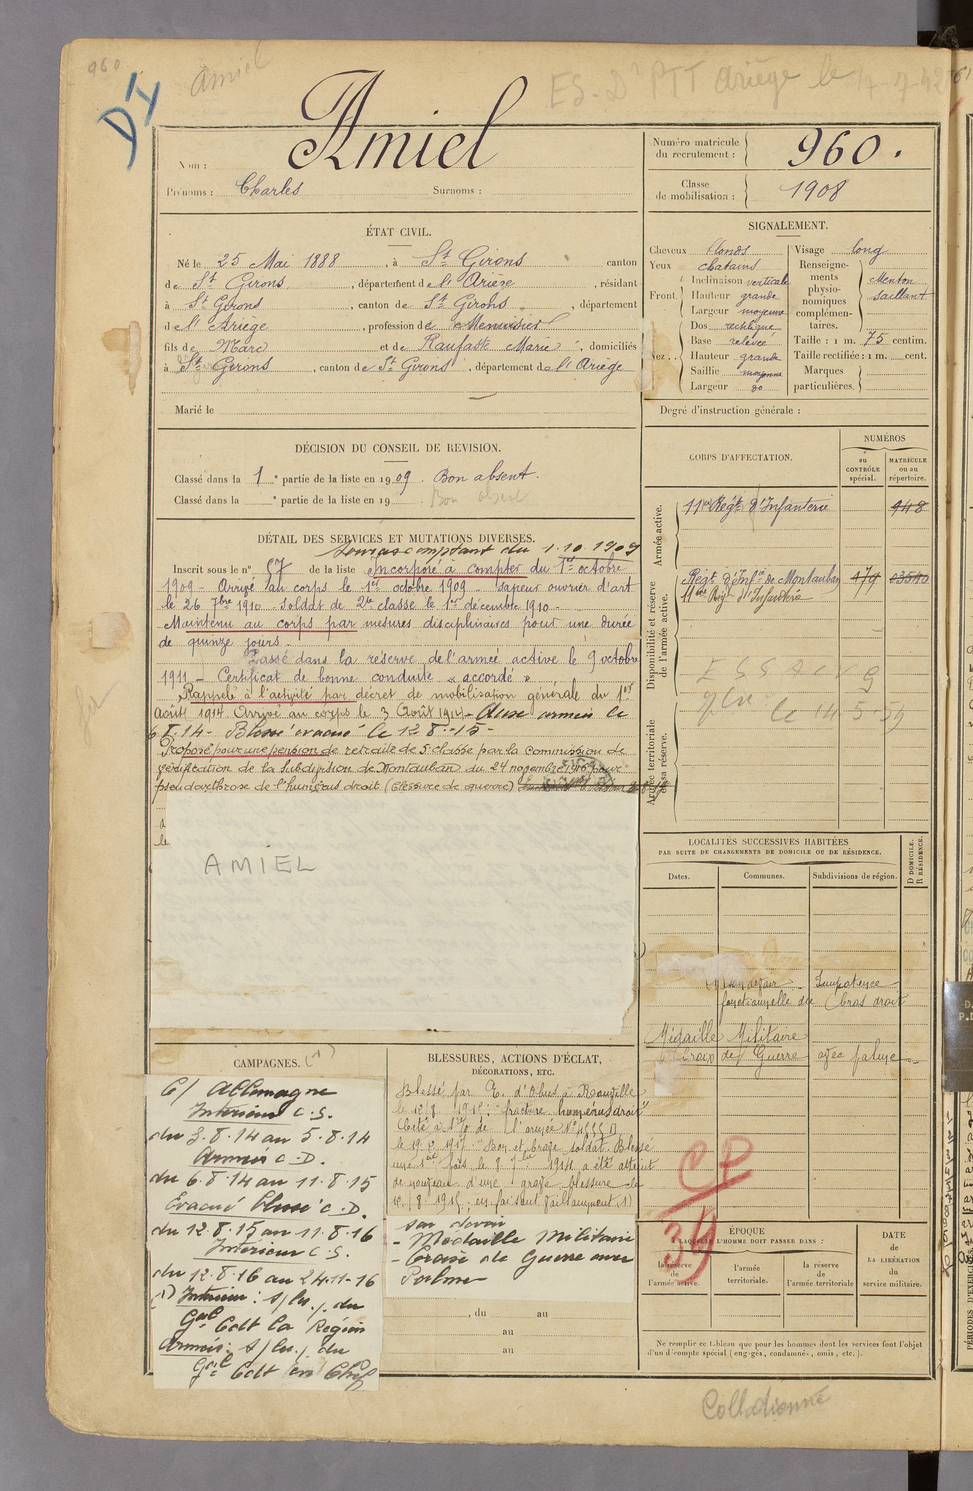 960
Amiel
ES. D PTT Ariège le 17-7-42
DI
Nom : Amiel
Prénoms : Charles Surnoms :
Numéro matricule du recrutement : 960.
Classe de mobilisation : 1908
ÉTAT CIVIL.
Né le 25 Mai 1888, à St Girons canton
de St Girons, département de l'Ariège, résidant
à St Girons, canton de St Girons, département
de l'Ariège, profession de Menuisier
fils de Marc et de Raufaste Marie, domiciliés
à St Girons, canton de St Girons, département de l'Ariège
Marié le
SIGNALEMENT.
Cheveux blonds
Yeux chatains
Front : Inclinaison verticale
Hauteur grande
Largeur moyenne
Nez : Dos rectiligne
Base relevée
Hauteur grande
Saillie moyenne
Largeur do
Visage long
Renseignements physionomiques complémentaires. Menton saillant
Taille : 1 m. 75 centim.
Taille rectifiée : 1 m. cent.
Marques particulières.
Degré d'instruction générale :
DÉCISION DU CONSEIL DE REVISION.
Classé dans la 1 e partie de la liste en 1909. Bon absent.
Classé dans la e partie de la liste en 19 Bon absent
DÉTAIL DES SERVICES ET MUTATIONS DIVERSES.
comptant du 1.10.1909
Inscrit sous le n° 57 de la liste Incorporé à compter du 1er octobre
1909 - Arrivé au corps le 1er octobre 1909 - Sapeur ouvrier d'art
le 26 7bre 1910 - Soldat de 2e classe le 1er décembre 1910 -
Maintenu au corps par mesures disciplinaires pour une durée
de quinze jours -
Passé dans la réserve de l'armée active le 9 octobre
1911 - Certificat de bonne conduite « accordé »
Rappelé à l'activité par décret de mobilisation générale du 1er
Août 1914 Arrivé au corps le 3 Août 1914 - Aux armées le
6.8.14 - Blessé évacué le 12.8.15 -
Proposé pour une pension de retraite de 5e classe par la Commission de
vérification de la Subdivision de Montauban du 24 novembre 1916 pour
pseudarthrose de l'humérus droit (blessure de guerre)
AMIEL
CORPS D'AFFECTATION.
NUMÉROS
au CONTRÔLE spécial.
MATRICULE ou au répertoire.
Armée active.
11me Régt d'Infanterie 948
Disponibilité et réserve de l'armée active.
Régt d'Infie de Montauban 479
11me Rég. d'Infanterie
Armée territoriale et sa réserve.
le 14-5-54
LOCALITÉS SUCCESSIVES HABITÉES
PAR SUITE DE CHANGEMENTS DE DOMICILE OU DE RÉSIDENCE.
Dates. Communes. Subdivisions de région. D DOMICILE. R RÉSIDENCE.
devoir Impotence
fonctionnelle du bras droit
Médaille Militaire
Croix de Guerre avec palme
CAMPAGNES. (1)
C/ Allemagne
Intérieur C.S.
du 3.8.14 au 5.8.14
Armées C.D.
du 6.8.14 au 11.8.15
Evacué blessé C.D.
du 12.8.15 au 11.8.16
Intérieur C.S.
du 12.8.16 au 24-11-16
(1) Intérieur : du
Gal Cdt la Région
Armées : du
Gal Cdt en Chef
BLESSURES, ACTIONS D'ÉCLAT,
DÉCORATIONS, ETC.
Blessé par E. d'obus à
le 12/8 1915 : "fracture humérus droit"
Cité à l'o/ de l'armée N°
"Bon et brave soldat. Blessé
une 1ère fois le 8 7bre 1914 a été atteint
de nouveau d'une grave blessure le
/8 1915, en faisant vaillamment
son devoir
- Médaille Militaire
- Croix de Guerre avec
Palme
, du au
au
au
CP
39
ÉPOQUE
A LAQUELLE L'HOMME DOIT PASSER DANS :
la réserve de l'armée active.
l'armée territoriale.
la réserve de l'armée territoriale
DATE de LA LIBÉRATION du service militaire.
Ne remplir ce tableau que pour les hommes dont les services font l'objet
d'un décompte spécial (engagés, condamnés, omis, etc.).
Collationné